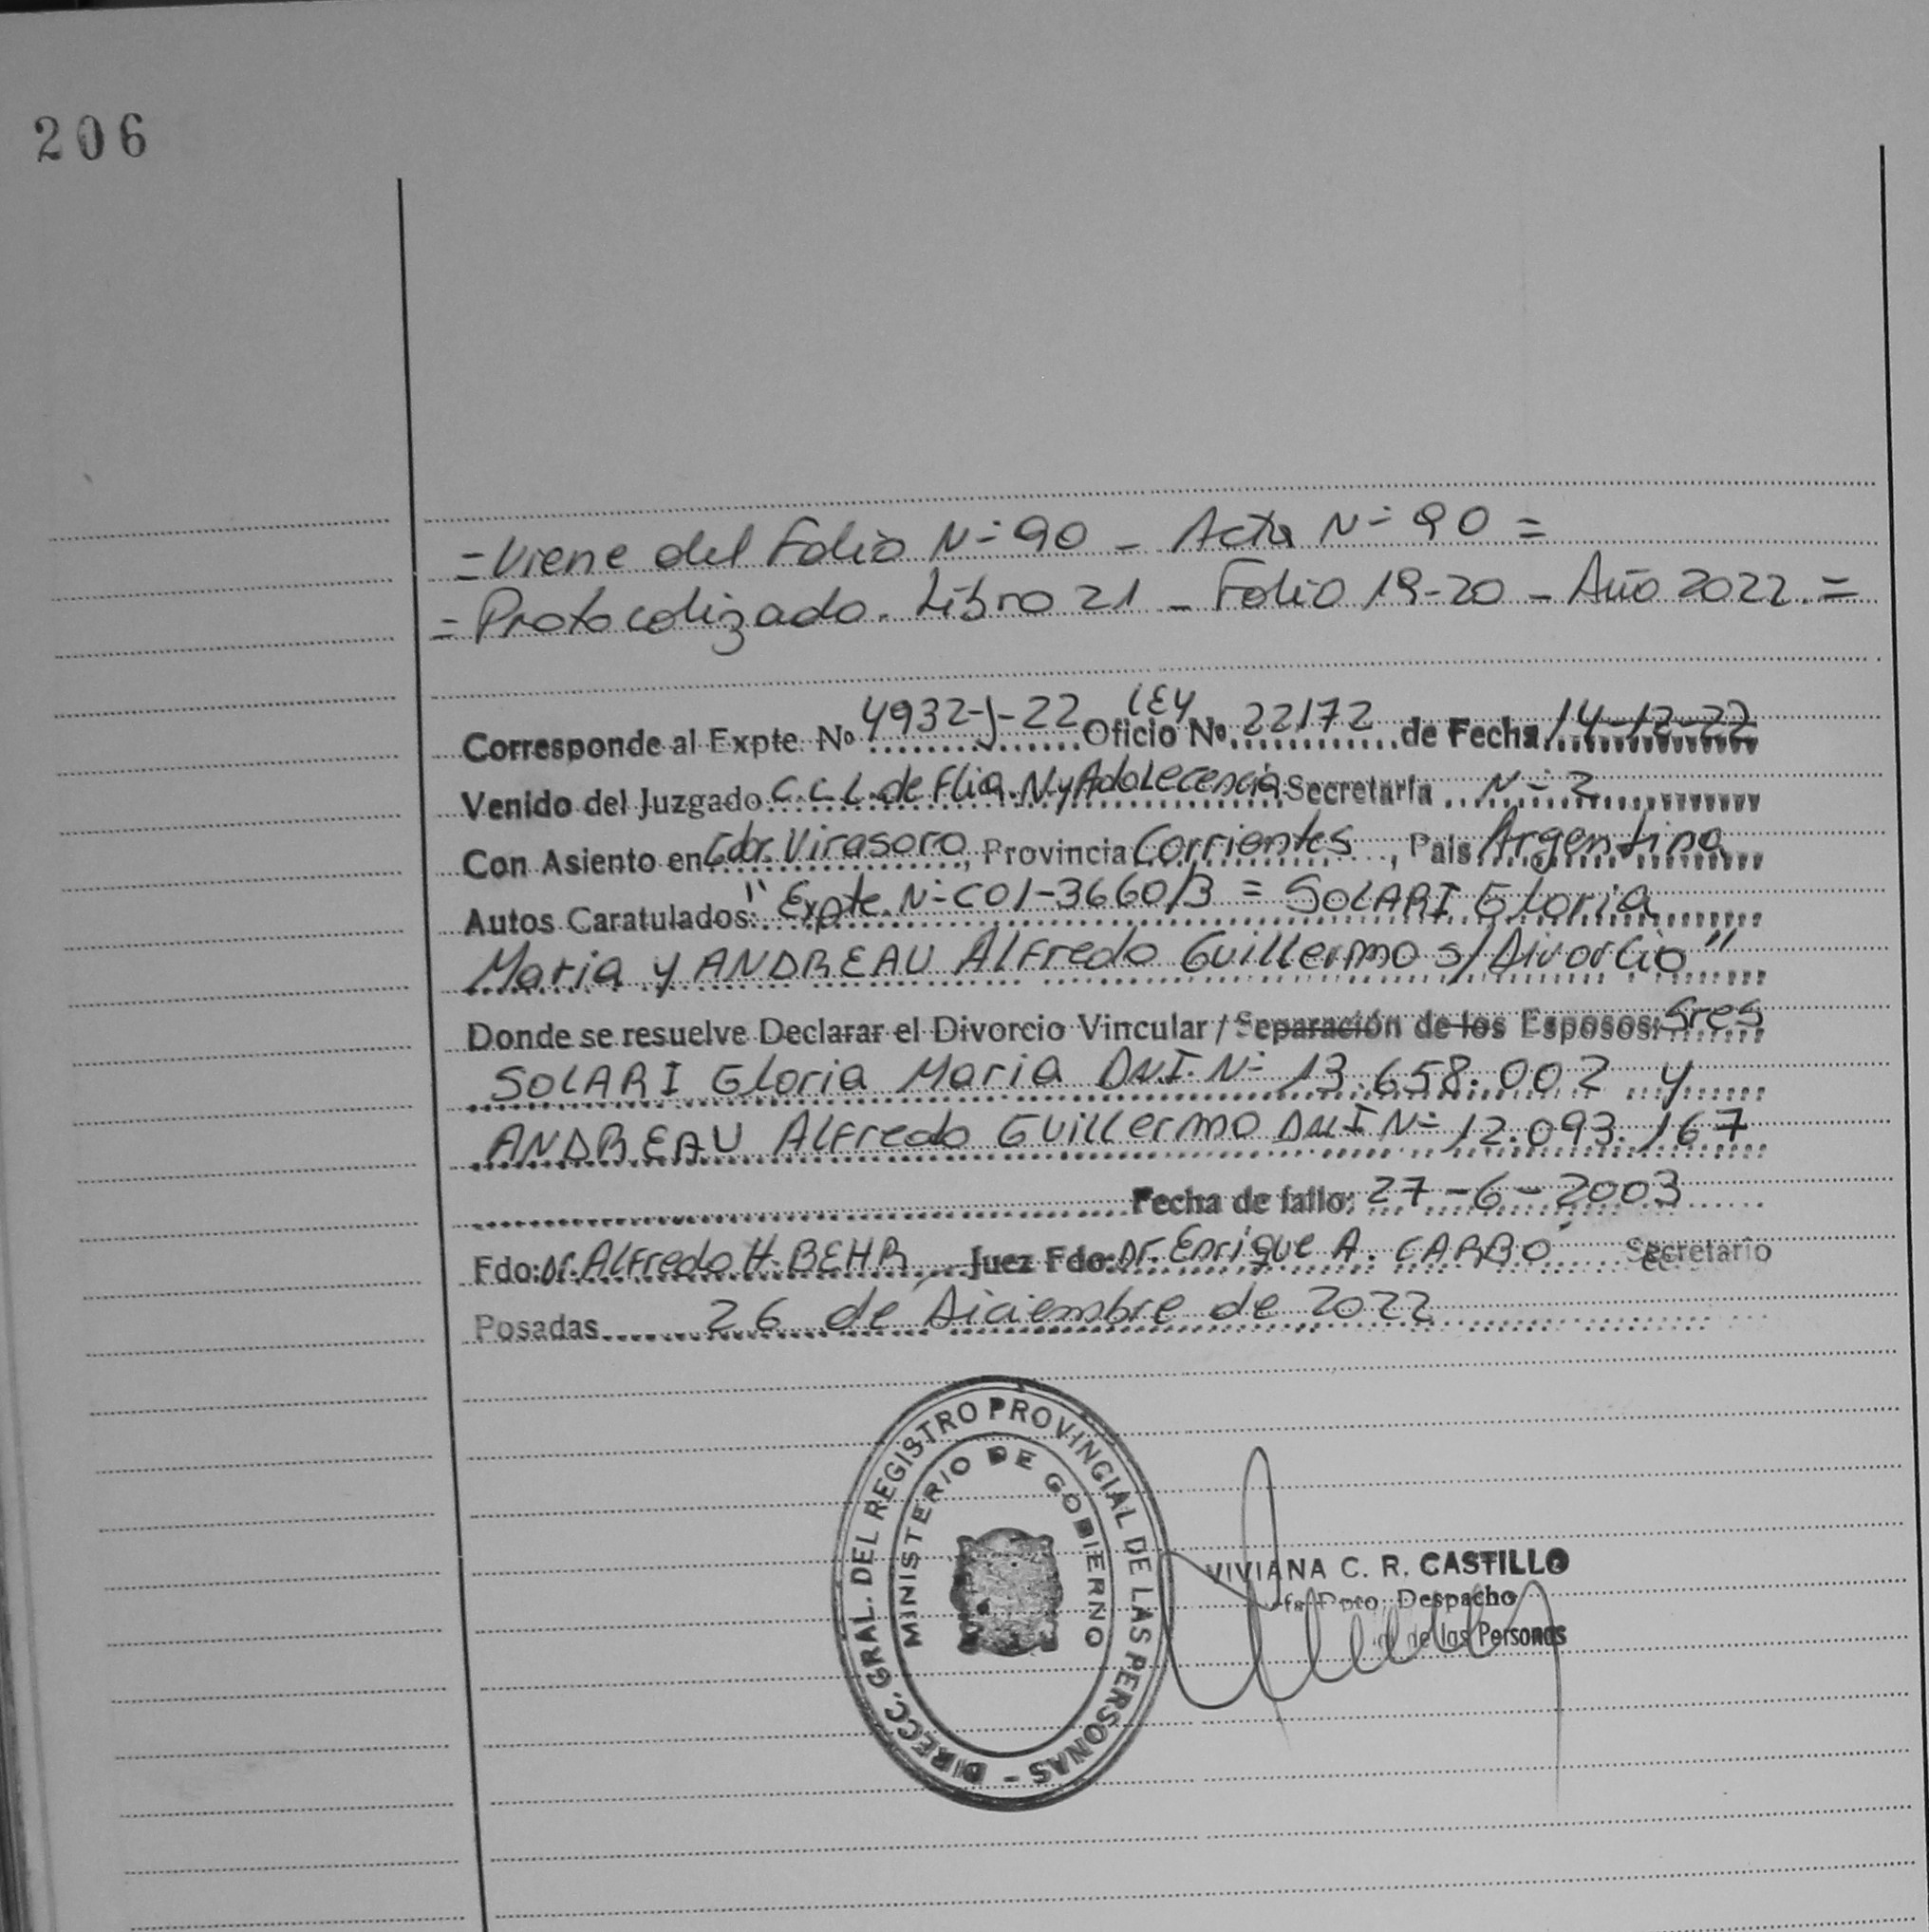 206
= Viene del Folio N= 90 - Acta N= 90 =
= Protocolizado. Libro 21 - Folio 19-20 - Año 2022. =
Corresponde al Expte. Nº 4932-J-22 LEY Oficio Nº 22172 de Fecha 14-12-22
Venido del Juzgado C.C.L. de Flia. N y Adolecencia Secretaría N= 2
Con Asiento en Gdor. Virasoro, Provincia Corrientes, País Argentina
Autos Caratulados: "Expte. N= C01-3660/3 = SOLARI Gloria
Maria y ANDREAU Alfredo Guillermo s/Divorcio"
Donde se resuelve Declarar el Divorcio Vincular / Separación de los Esposos: Sres
SOLARI Gloria Maria D.N.I. N= 13.658.002 y
ANDREAU Alfredo Guillermo DNI N= 12.093.167
Fecha de fallo: 27-6-2003
Fdo: Dr. Alfredo H. BEHR Juez Fdo: Dr. Enrique A. CARBO Secretario
Posadas 26 de Diciembre de 2022
DIRECC. GRAL. DEL REGISTRO PROVINCIAL DE LAS PERSONAS -
MINISTERIO DE GOBIERNO
VIVIANA C. R. CASTILLO
Dpto. Despacho
de las Personas